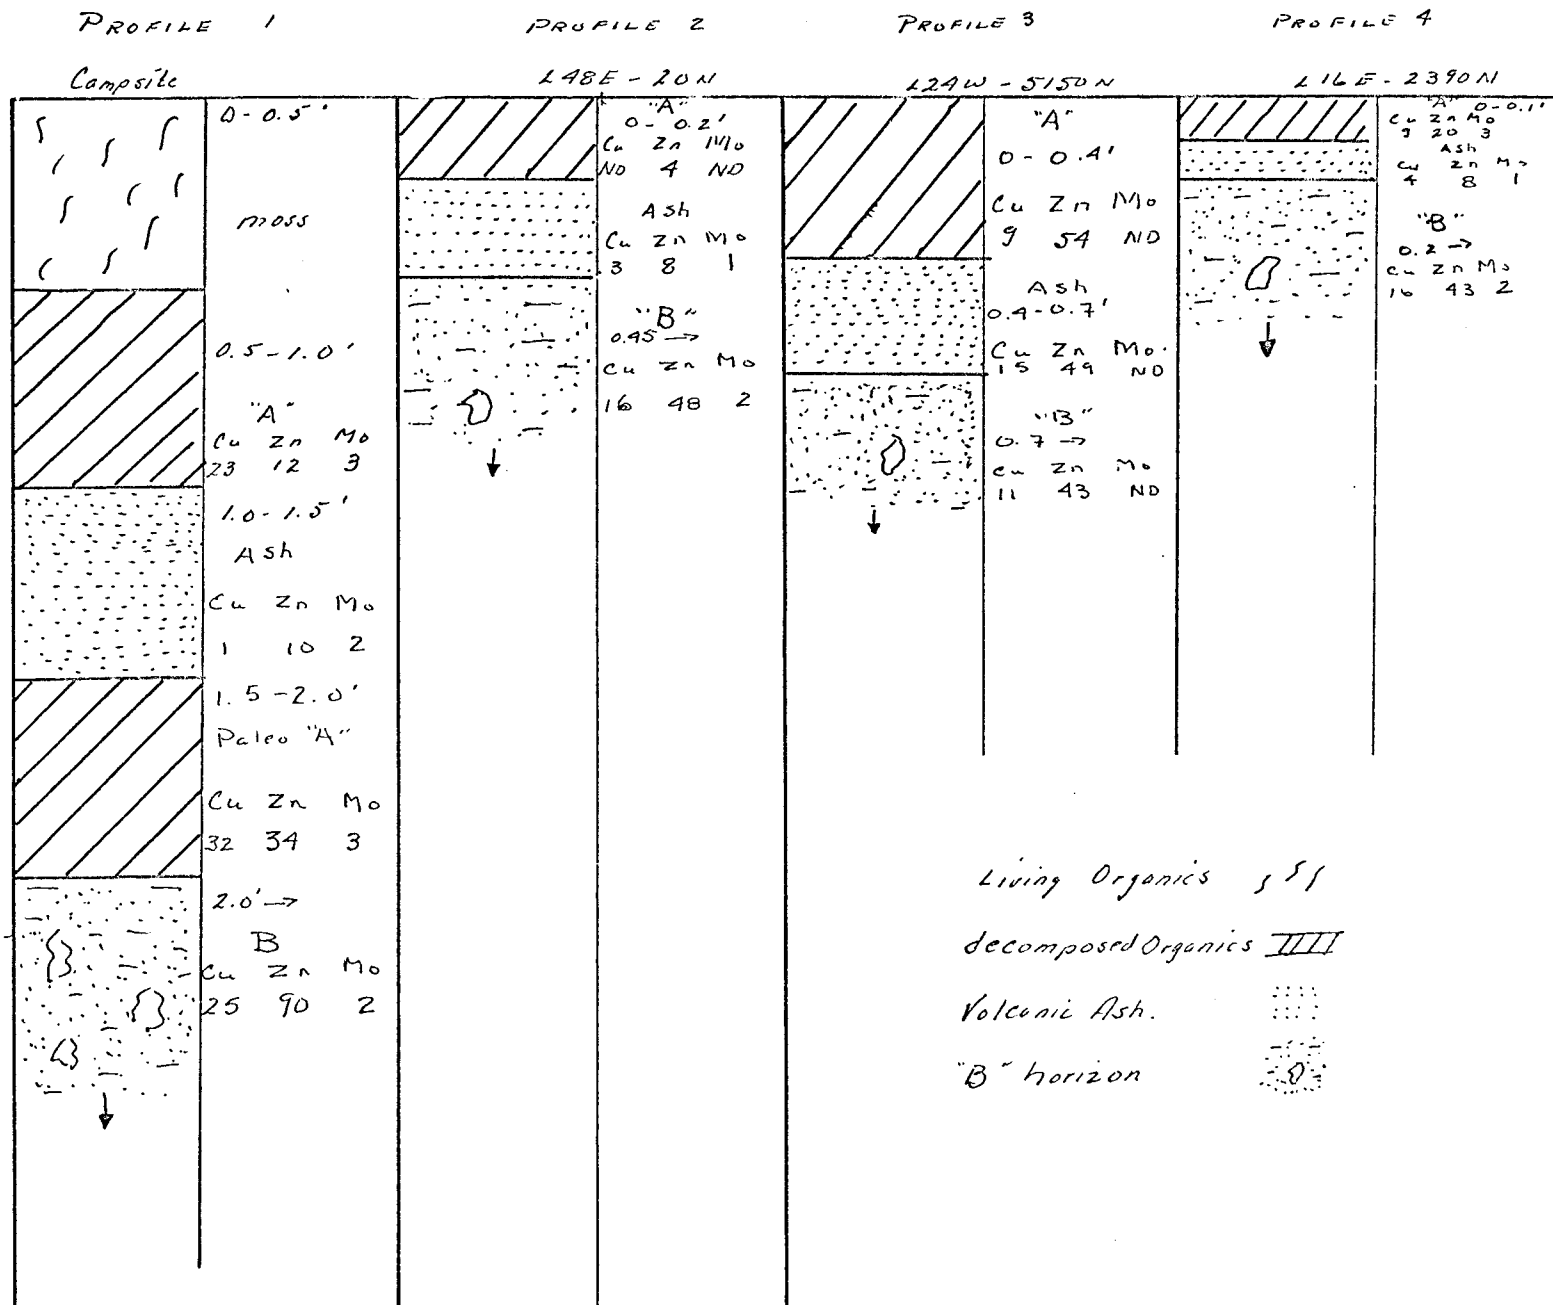 PROFILE 1
Campsite
0 - 0.5'
moss
0.5 - 1.0'
"A"
Cu Zn Mo
23 12 3
1.0 - 1.5'
Ash
Cu Zn Mo
1 10 2
1.5 - 2.0'
Paleo "A"
Cu Zn Mo
32 34 3
2.0' →
B
Cu Zn Mo
25 90 2
PROFILE 2
L48E - 20N
"A"
0 - 0.2'
Cu Zn Mo
ND 4 ND
Ash
Cu Zn Mo
3 8 1
"B"
0.45 →
Cu Zn Mo
16 48 2
PROFILE 3
L24W - 5150N
"A"
0 - 0.4'
Cu Zn Mo
9 54 ND
Ash
0.4 - 0.7'
Cu Zn Mo.
15 49 ND
"B"
0.7 →
Cu Zn Mo
11 43 ND
PROFILE 4
L16E - 2390N
"A" 0 - 0.1'
Cu Zn Mo
20 3
Ash
Cu Zn Mo
4 8 1
"B"
0.2 →
Cu Zn Mo
16 43 2
Living Organics
decomposed Organics
Volcanic Ash.
"B" horizon